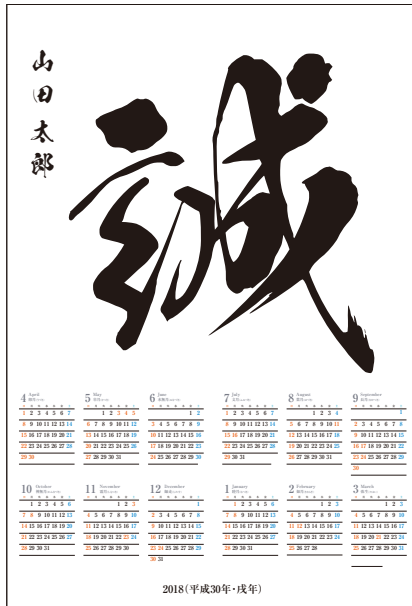 山田太郎
誠
4 April
1 2 3 4 5 6 7
8 9 10 11 12 13 14
15 16 17 18 19 20 21
22 23 24 25 26 27 28
29 30
5 May
1 2 3 4 5
6 7 8 9 10 11 12
13 14 15 16 17 18 19
20 21 22 23 24 25 26
27 28 29 30 31
6 June
1 2
3 4 5 6 7 8 9
10 11 12 13 14 15 16
17 18 19 20 21 22 23
24 25 26 27 28 29 30
7 July
1 2 3 4 5 6 7
8 9 10 11 12 13 14
15 16 17 18 19 20 21
22 23 24 25 26 27 28
29 30 31
8 August
1 2 3 4
5 6 7 8 9 10 11
12 13 14 15 16 17 18
19 20 21 22 23 24 25
26 27 28 29 30 31
9 September
1
2 3 4 5 6 7 8
9 10 11 12 13 14 15
16 17 18 19 20 21 22
23 24 25 26 27 28 29
30
10 October
1 2 3 4 5 6
7 8 9 10 11 12 13
14 15 16 17 18 19 20
21 22 23 24 25 26 27
28 29 30 31
11 November
1 2 3
4 5 6 7 8 9 10
11 12 13 14 15 16 17
18 19 20 21 22 23 24
25 26 27 28 29 30
12 December
1
2 3 4 5 6 7 8
9 10 11 12 13 14 15
16 17 18 19 20 21 22
23 24 25 26 27 28 29
30 31
1 January
1 2 3 4 5 6
7 8 9 10 11 12 13
14 15 16 17 18 19 20
21 22 23 24 25 26 27
28 29 30 31
2 February
1 2 3
4 5 6 7 8 9 10
11 12 13 14 15 16 17
18 19 20 21 22 23 24
25 26 27 28
3 March
1 2 3
4 5 6 7 8 9 10
11 12 13 14 15 16 17
18 19 20 21 22 23 24
25 26 27 28 29 30 31
2018(平成30年・戌年)